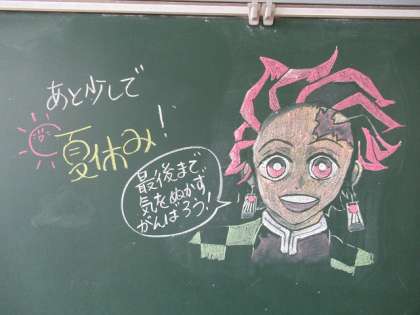 あと少しで
夏休み!
最後まで
気をぬかず
がんばろう!